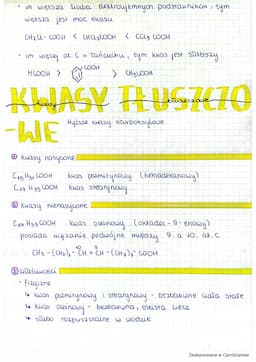 • im większa liczba elektroujemnych podstawników, tym
większa jest moc kwasu
CH₂Cl-COOH < CHCl₂COOH < CCl₃COOH
• im więcej at. C w łańcuchu, tym kwas jest słabszy
HCOOH > COOH > CH₃COOH
KWASY TŁUSZCZO
-WE
Wyższe kwasy karboksylowe
① Kwasy nasycone
C₁₅H₃₁COOH kwas palmitynowy (heksadekanowy)
C₁₇H₃₅COOH kwas stearynowy
② Kwasy nienasycone
C₁₇H₃₃COOH kwas oleinowy (oktadec-9-enowy)
posiada wiązanie podwójne między 9. a 10. at. C
CH₃-(CH₂)₇-CH=CH-(CH₂)₇-COOH
③ Właściwości
- fizyczne
↳ kwas palmitynowy i stearynowy - bezbarwne ciała stałe
↳ kwas oleinowy - bezbarwna, oleista ciecz
↳ słabo rozpuszczalne w wodzie
Zeskanowane w CamScanner